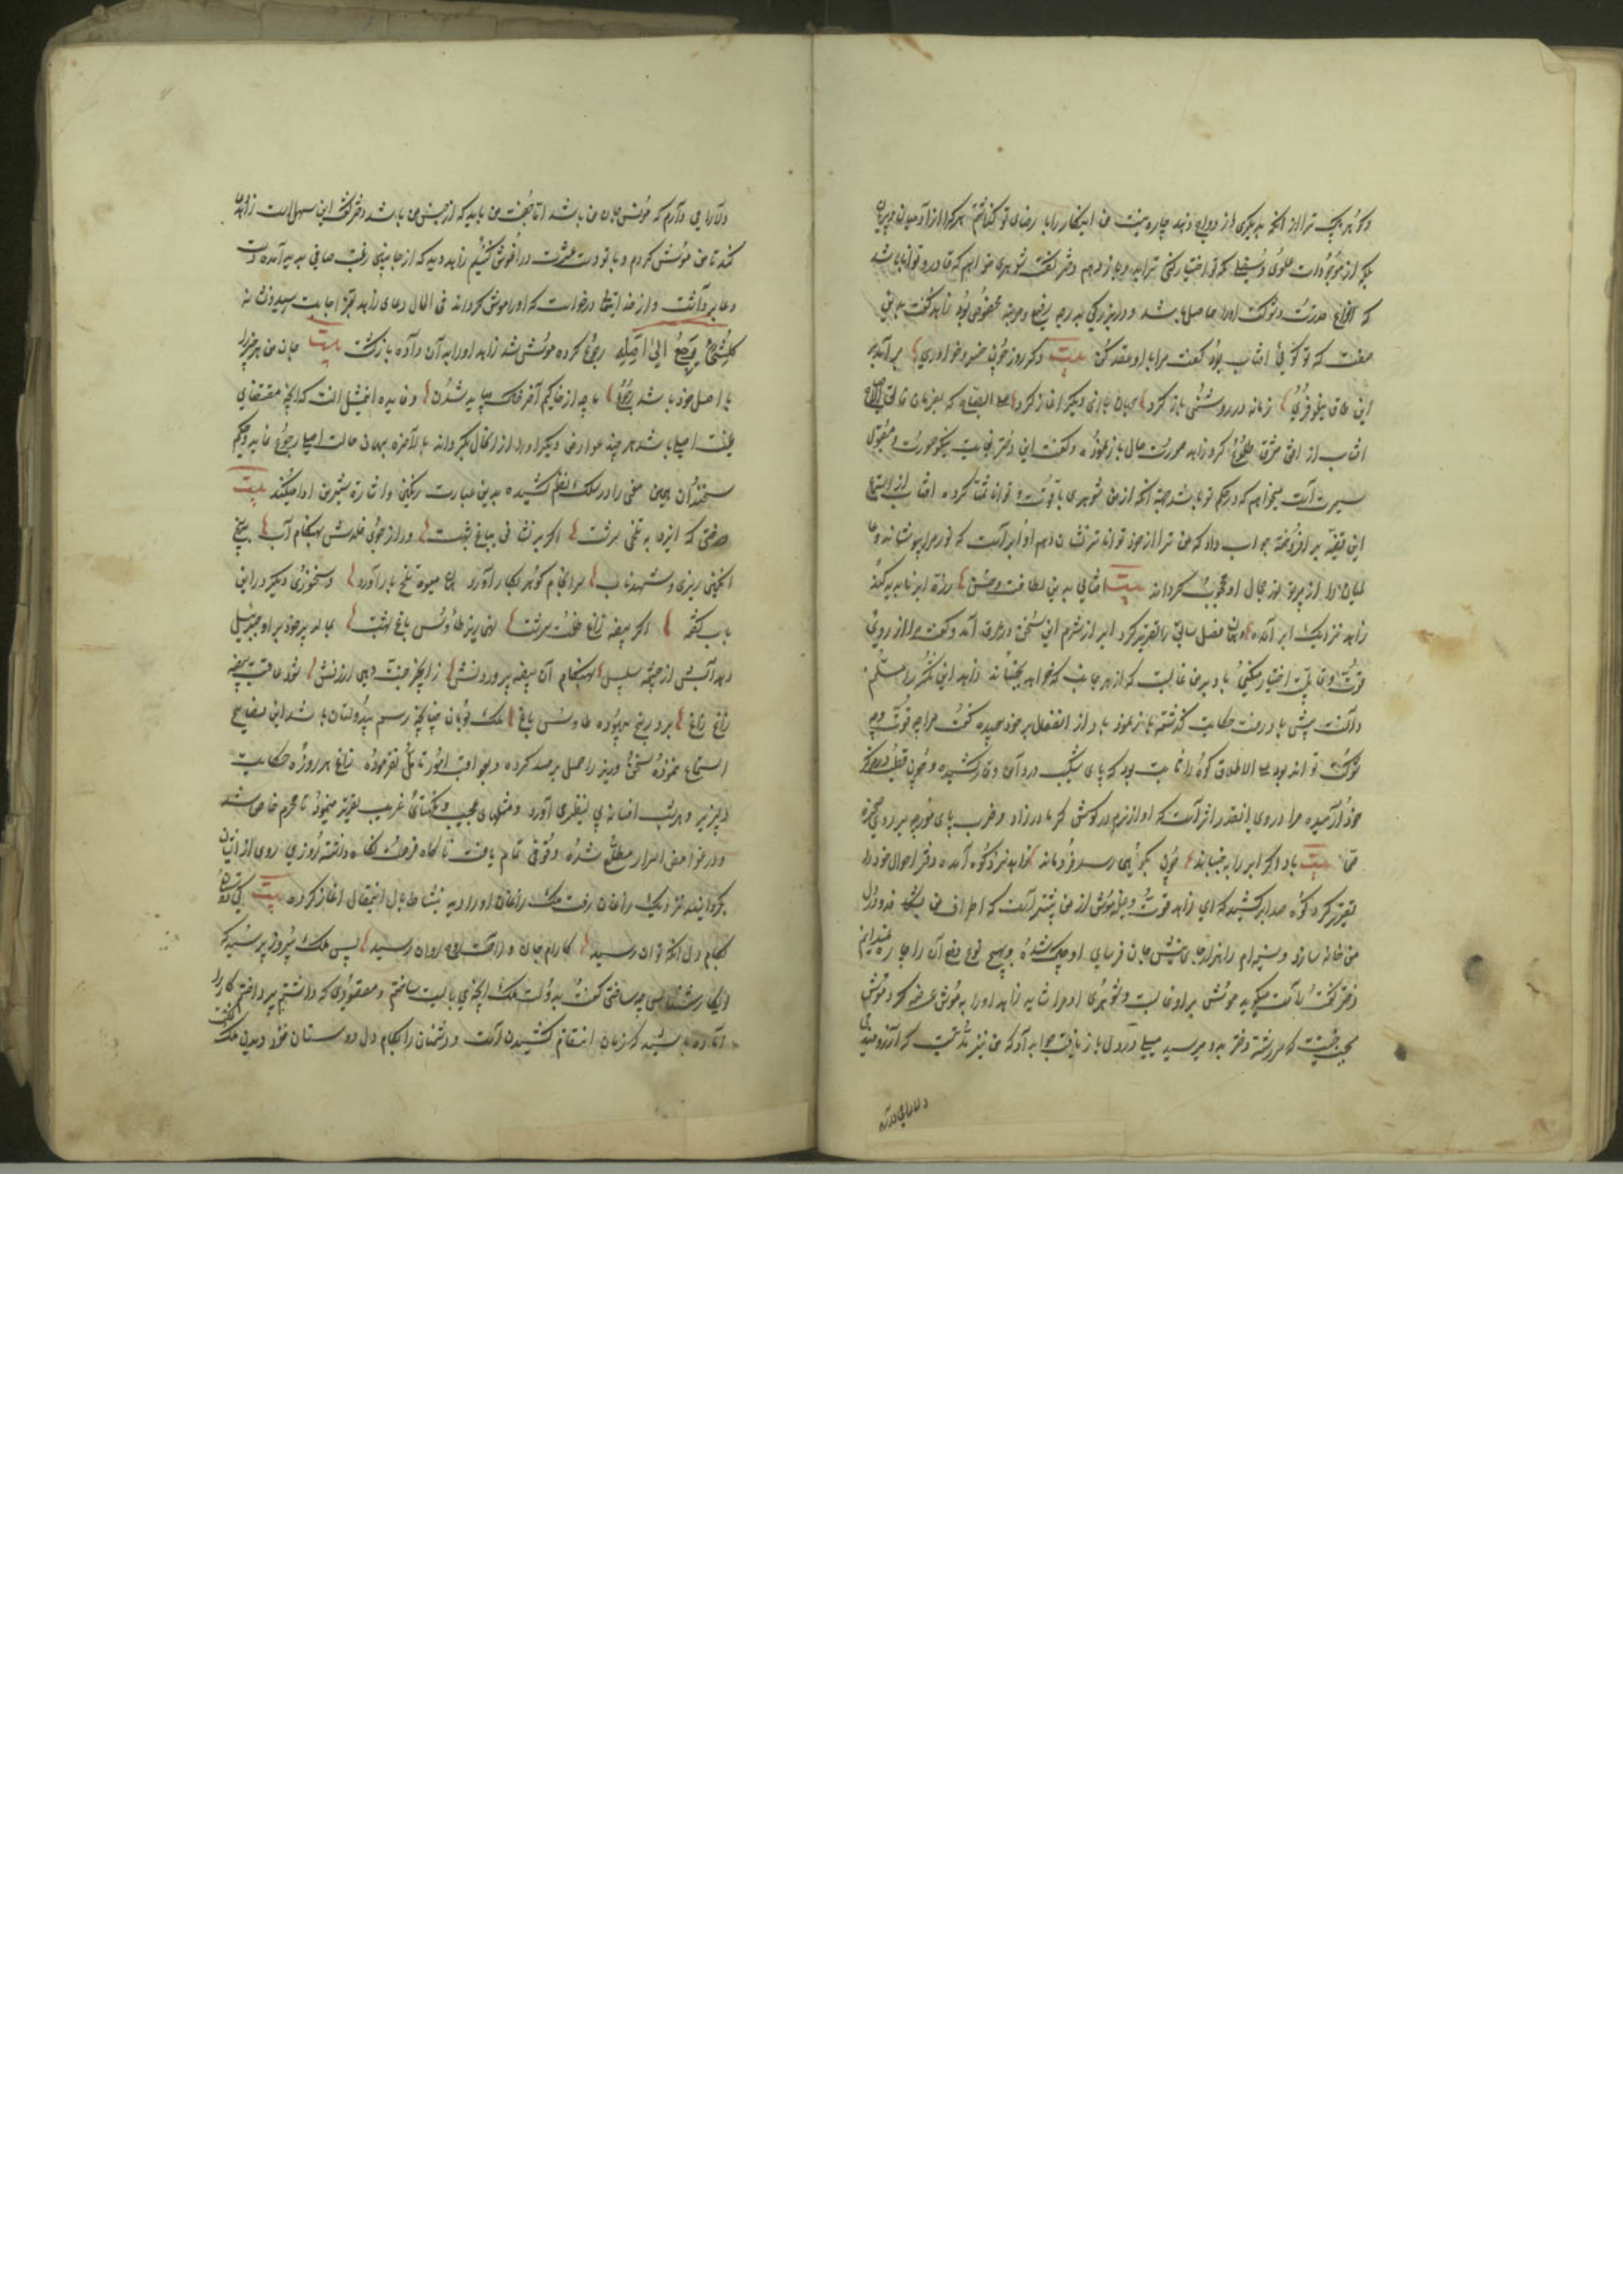 و گوهر پاک ترا از آنکه به دیگری از دواج دهند چاره نیست من اینکار را با رضای تو گذاشتم هر کرا از آدمیان و پریان
بلکه از موجودات علوی و سفلی که تو اختیار کنی ترا بدو باز دهم دختر گفت شوهری خواهم که قادر و توانا باشد
که انواع قدرت و شوکت او را حاصل باشد و در بزرگی بدرجه رفیع و مرتبه مخصوص بود زاهد گفت بدین
صفت که تو گویی آفتاب بود گفت مرا با او عقد کن بیت دگر روز چون خسرو خاوری بر آمد بر
این طاق نیلوفری زمانه در روشنی باز کرد جهان بازی دیگر آغاز کرد علی الصباح که بفرمان فالق الاصباح
آفتاب از افق مشرق طلوع کرد زاهد صورت حال باز نمود و گفت این دختر بغایت نیکو صورت و مقبول
سیرت است میخواهم که در حکم تو باشد چه آنکه از من شوهری با قوت و توانا تمنا کرده آفتاب از استماع
این قضیه بر افروخته جواب داد که من ترا از خود تواناتر نشان دهم او ابر است که نور مرا بپوشاند و عا
لمیان را از پرتو نور جمال او محجوب گرداند بیت آفتابی بدین لطافت و حسن ذره ابر ناپدید کند
زاهد نزدیک ابر آمده و همان فصل سابق را تقریر کرد ابر از شرم این سخن در عرق آمد و گفت مرا از روی
قوت و قابلیت اختیار میکنی باد بر من غالبست که از هر جانب که خواهد بجنباند زاهد این نکته را مسلم
داشت پیش باد رفت حکایت گذشته باز نمود باد از انفعال بر خود پیچیده گفت مرا چه قوت و چه
شوکت تواند بود علی الاطلاق کوه را ثابت بود که پای شکیب در دامن وقار کشیده و چون قطب در مرکز
خود آرمیده مرا در وی اینقدر اثر است که آواز نرم در گوش کر مادرزاد و ضرب پای مورچه بر روی صخره
صما بیت باد اگر ابر را بجنباند چون بکوهی رسد فرو ماند زاهد نزد کوه آمده دفتر احوال خود را
تقریر کرد کوه صدا برکشید که ای زاهد قوت و غلبه موش از من بیشتر است که اطراف من بشکافد و در دل
من خانه سازد و سینه‌ام را هزار جا بنیش جان فرسای او چاک شده و بهیچ نوع دفع آن را چاره نمیدانم
دختر گفت راست میگوید موش بر او غالبست و شوهری او مرا شاید زاهد او را به موش عرضه کرد موش
بجنسیت که سررشته دختر بدو میرسید میلی در دل باز یافت جواب داد که من نیز مدتیست که آرزومند
دلارامی دارم
دلارامی دارم که مونس جان من باشد اما جفت من باید که از جنس من باشد دختر گفت این سهل است زاهد دعا
کند تا من موش گردم و با تو دست عشرت در آغوش کنیم زاهد دید که از جانبین رغبت صافی پدید آمده دست
دعا برداشت و از خدا یتعالی درخواست که او را موش گرداند فی الحال دعای زاهد بعز اجابت رسید و نشانه
کل شئ یرجع الی اصله رجوع کرده موشی شد زاهد او را به آن داده بازگشت بیت جان من هر چیز را
با اصل خود باشد رجوع ما چو از خاکیم آخر خاک می‌باید شدن و فایده این مثل آنست که آنچه مقتضای
طینت اصلی باشد هر چند عوارض دیگر او را از آنحال بگرداند بالاخره بهمان حالت اصلی رجوع نماید و حکیم
سخندان همین معنی را در سلک نظم کشیده بدین عبارت رنگین و اشارة شیرین ادا میکند بیت
درختی که ایزد به تلخی سرشت اگر برنشانی بباغ بهشت ور از جوی خلدش بهنگام آب ببیخ
انگبین ریزی و شهد ناب سرانجام گوهر بکار آورد همان میوه تلخ بار آورد و سخنوری دیگر در این
باب گفته اگر بیضه زاغ ظلمت سرشت نهی زیر طاوس باغ بهشت بمالد پر خود بر او جبرئیل
دهد آبش از چشمه سلسبیل بهنگام آن بیضه پروردنش ز انجیر جنت دهی ارزنش شود عاقبت بیضه
زاغ زاغ برد رنج بیهوده طاوس باغ ملک بومان چنانچه رسم بیدولتان باشد این نصایح
استماع ننموده سخن وزیر را حمل بر حسد کرده و بعواقب امور تامل نفرموده زاغ هر روزه حکایت
دلپذیر و هر شب افسانه بی نظیر می آورد و مثلهای عجیب و نکتهای غریب تقریر مینمود تا محرم خاص شد
و در غوامض اسرار مطلع شده وقوفی تمام یافت ناگاه فرصت نگاه داشته روزی روی از ایشان
بگردانیده نزدیک زاغان رفت ملک زاغان او را دیده بنشاط بال استقبال آغاز کرده بیت که مژده
بکام دل آنکه توان رسید کارام جان و راحت روح روان رسید پس ملک پیروز پرسید که
ای کارشناس چه ساختی گفت بدولت ملک آنچه می بایست ساختم و مقصودی که داشتم پرداختم کار را
آماده باشید که زمان انتقام کشیدن است و دشمنان را بکام دل دوستان خود دیدن ملک گفت